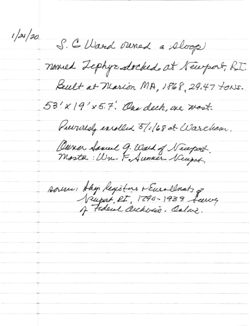 1/21/20
S. G Ward owned a sloop
named Zephyr docked at Newport, R.I.
Built at Marion MA, 1868, 29.47 tons.
53' x 19' x 5.7'. One deck, one mast.
Previously enrolled 5/1/68 at Wareham.
Owner Samuel G. Ward of Newport.
Master: Wm. F. Sumner Newport.
source: Ship Registers & Enrollments of
Newport, RI, 1790-1939 Survey
of Federal Archives.